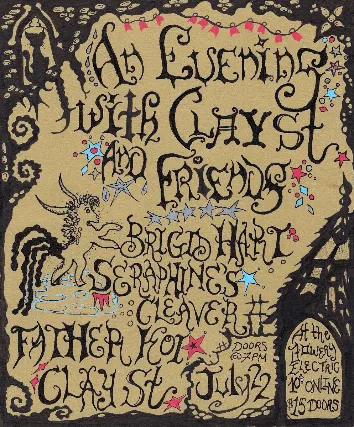 An Evening
with Clayst
AND
Friends
BRIGID HART
SERAPHINE'S
CLEAVER
FATHER KOI
CLAY St
DOORS
@7PM
July 22
At the
Howery
Electric
10$ ONLINE
$15 DOORS